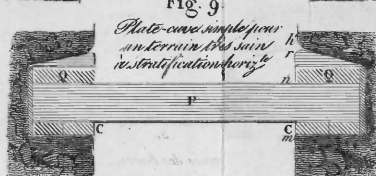 Fig. 9
Plate-cuve simple pour
un terrain très sain
à stratification horiz.le
h
r
Q Q
n
P
C C
m